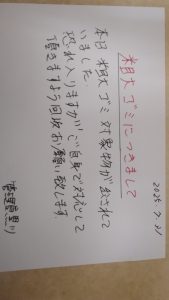 2025.7.31
粗大ゴミにつきまして
本日 粗大ゴミ対象物が出されて
いました。
恐れ入りますが、ご自身で対応して
頂きますよう何卒お願い致します。
管理員